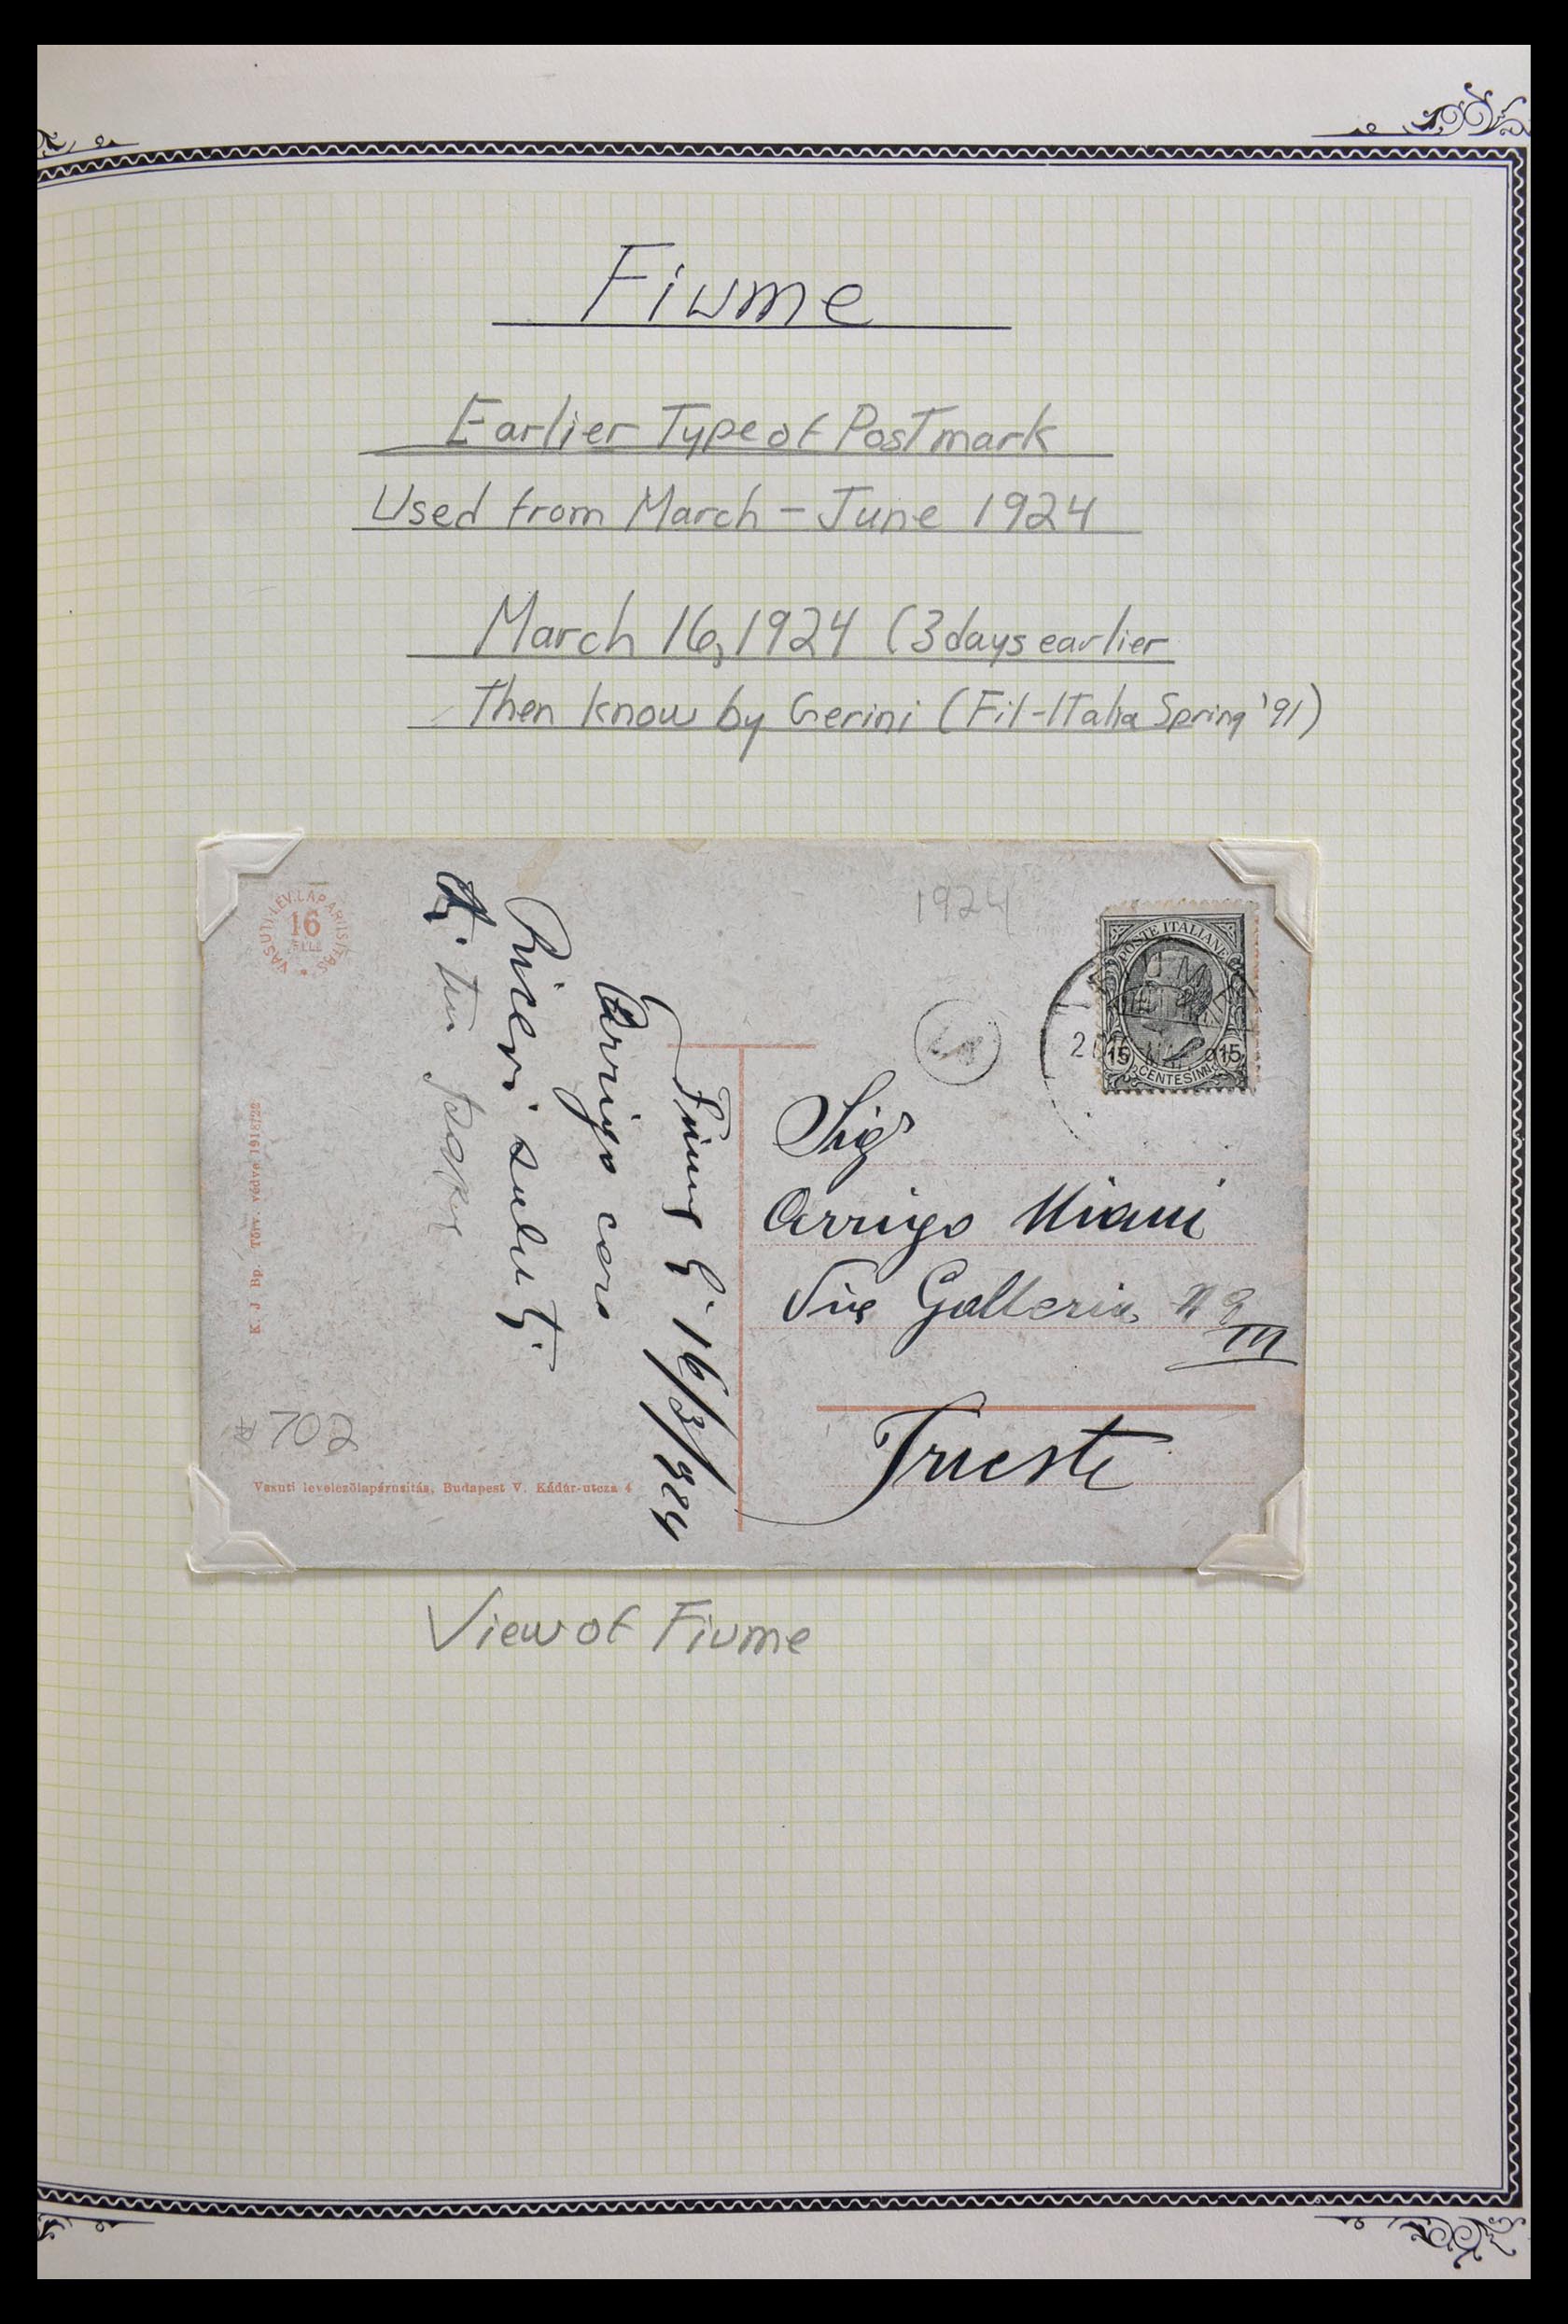 Fiume
Earlier Type of Postmark
Used from March - June 1924
March 16, 1924 (3 days earlier
Then know by Gerini (Fil-Italia Spring '91)
VASUTI LEV. LAPÁRUSITÁS
16
1924
POSTE ITALIANE
15 15
CENTESIMI
Fiume li 16/3/924
Arrigo caro
Ricevi saluti
Sigr
Arrigo Miani
Via Galleria N 9
III
Trieste
K. J. Bp. Törv. védve 1918/22
#702
Vasuti levelezőlapárusitás, Budapest V. Kádár-utcza 4
View of Fiume